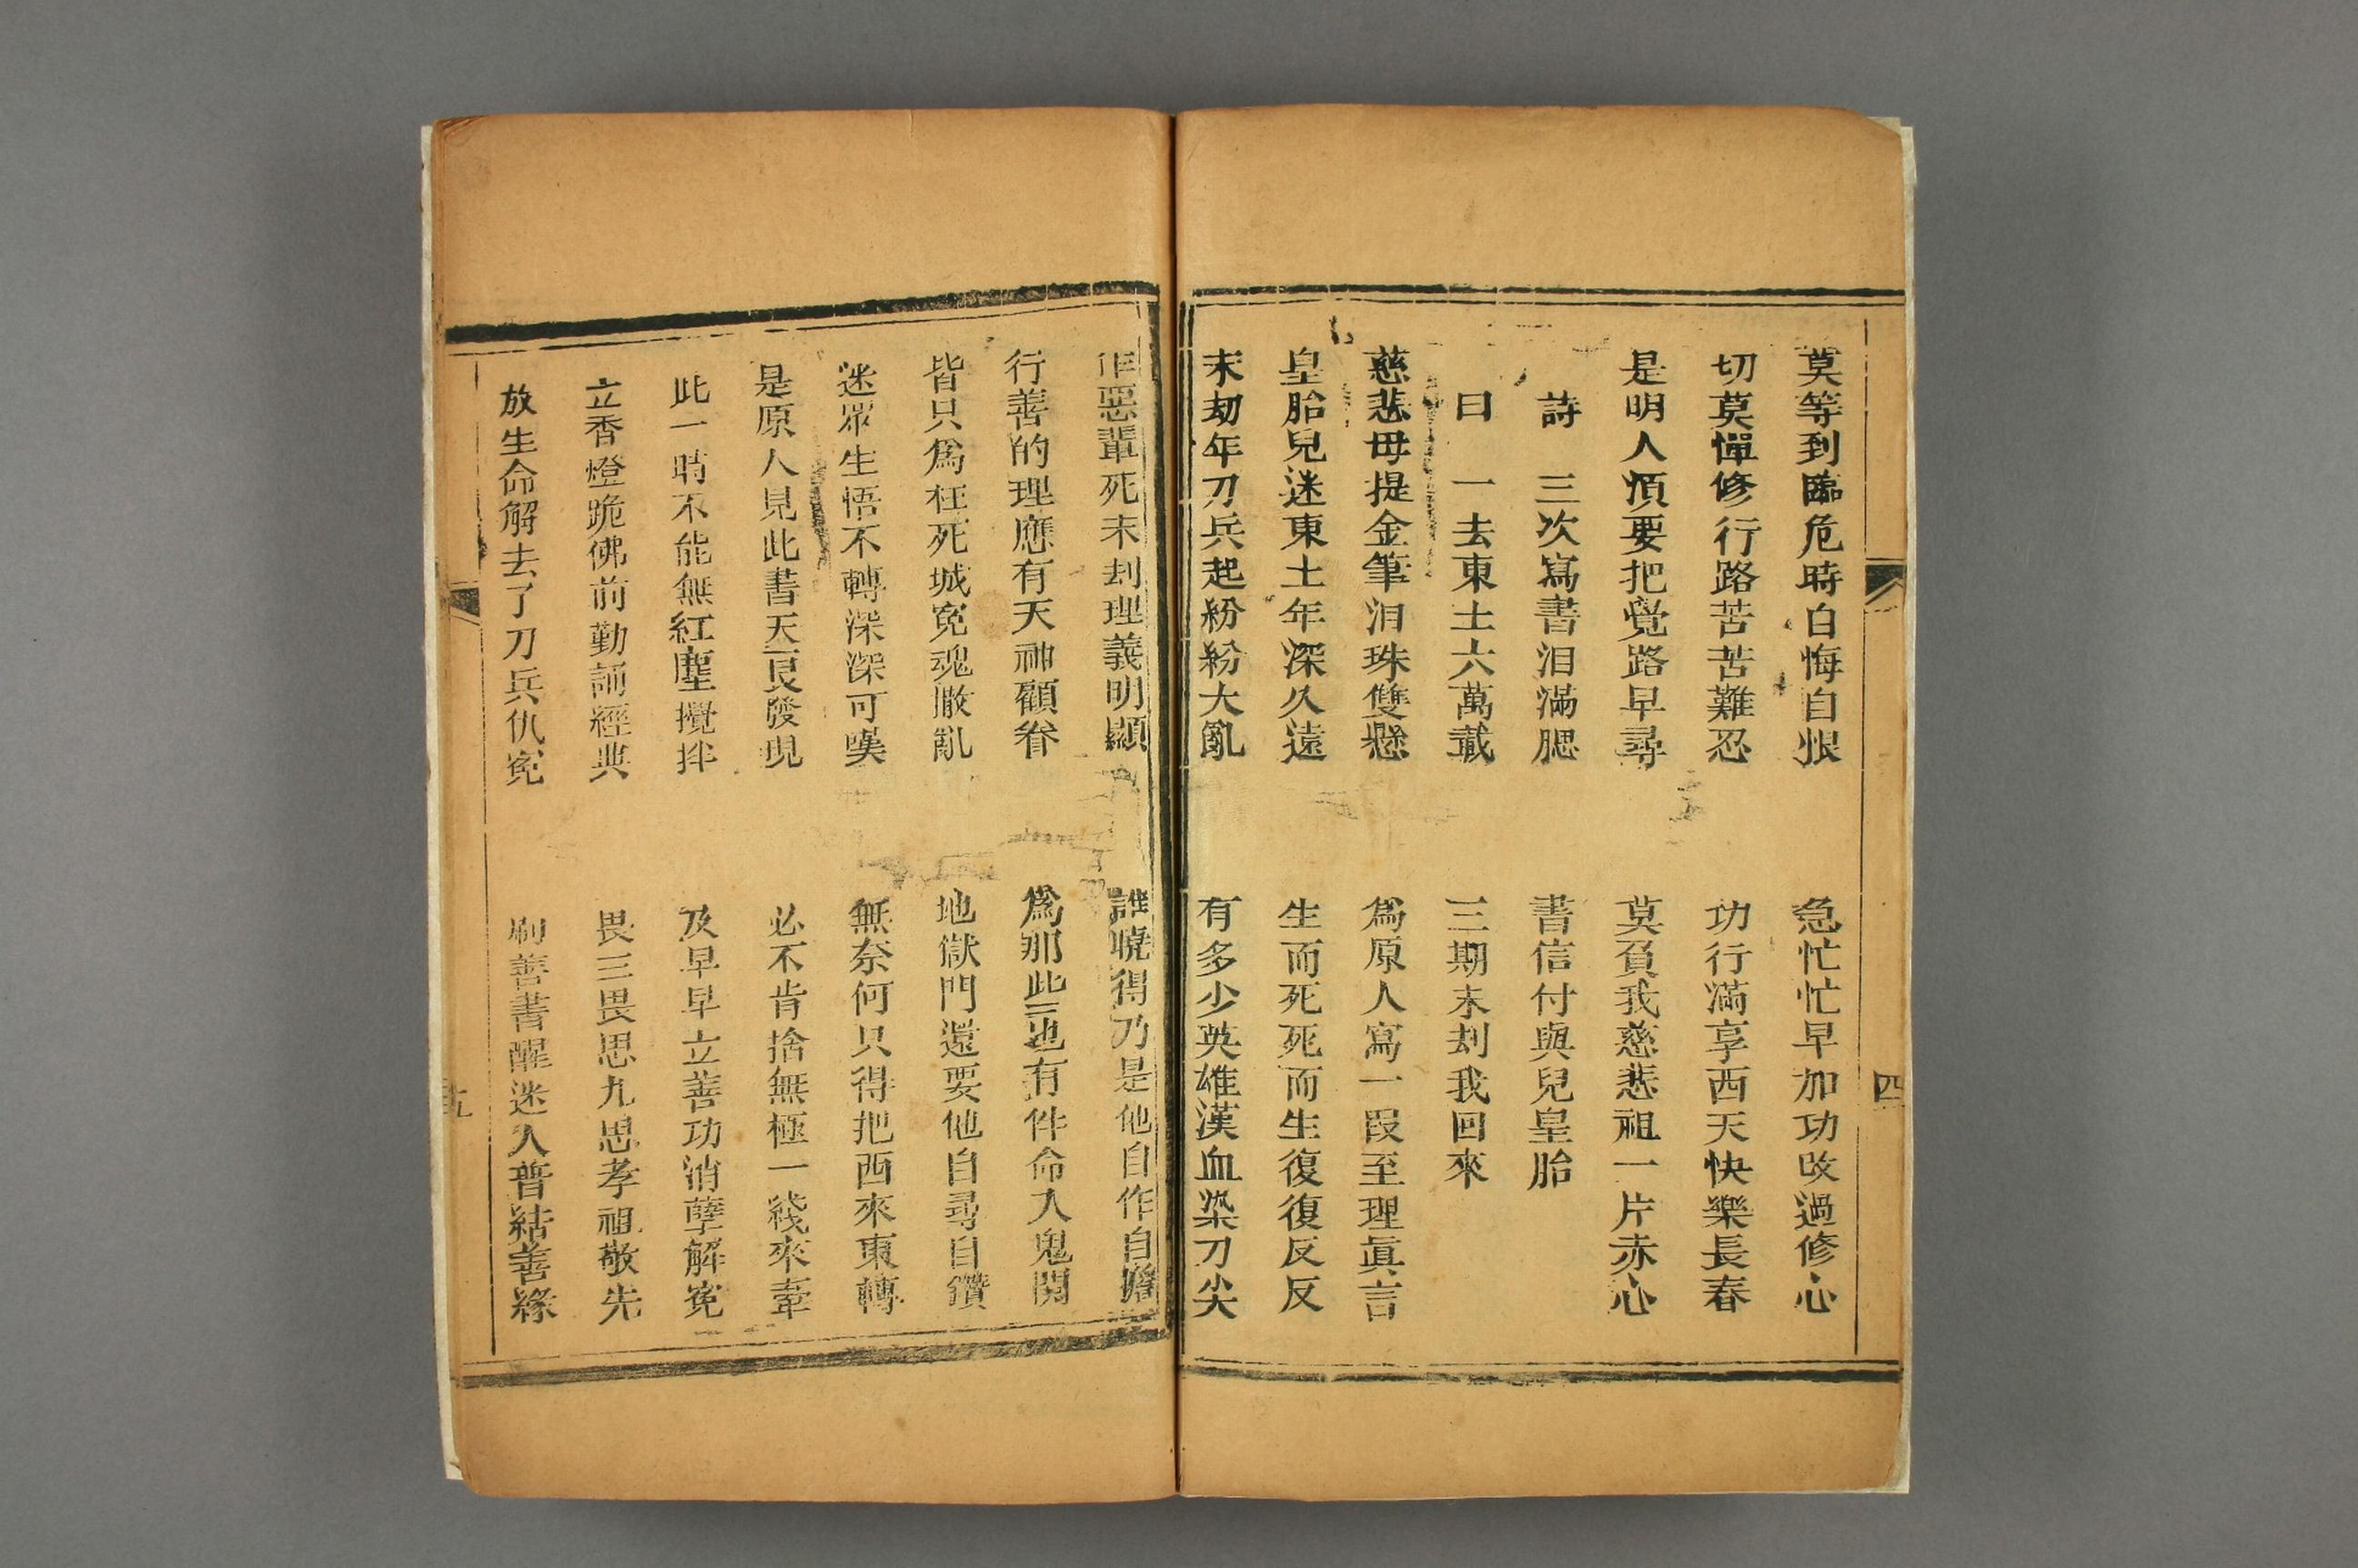 莫等到臨危時自悔自恨　急忙忙早加功改過修心
切莫憚修行路苦苦難忍　功行滿享西天快樂長春
是明人須要把覺路早尋　莫負我慈悲祖一片赤心
詩　三次寫書泪滿腮　書信付與兒皇胎
曰　一去東土六萬載　三期末刧我回來
慈悲母提金筆泪珠雙懸　爲原人寫一段至理眞言
皇胎兒迷東土年深久遠　生而死死而生復復反反
末刼年刀兵起紛紛大亂　有多少英雄漢血染刀尖
四
作惡輩死末刧理義明顯　誰曉得乃是他自作自擔
行善的理應有天神顧眷　爲那些也有件命入鬼關
皆只爲枉死城寃魂撒亂　地獄門還要他自尋自鑽
迷眾生悟不轉深深可嘆　無奈何只得把西來東轉
是原人見此書天良發現　必不肯捨無極一綫來牽
此一時不能無紅塵攪拌　及早早立善功消孽解寃
立香燈跪佛前勤誦經典　畏三畏思九思孝祖敬先
放生命解去了刀兵仇寃　刷善書醒迷人普結善緣